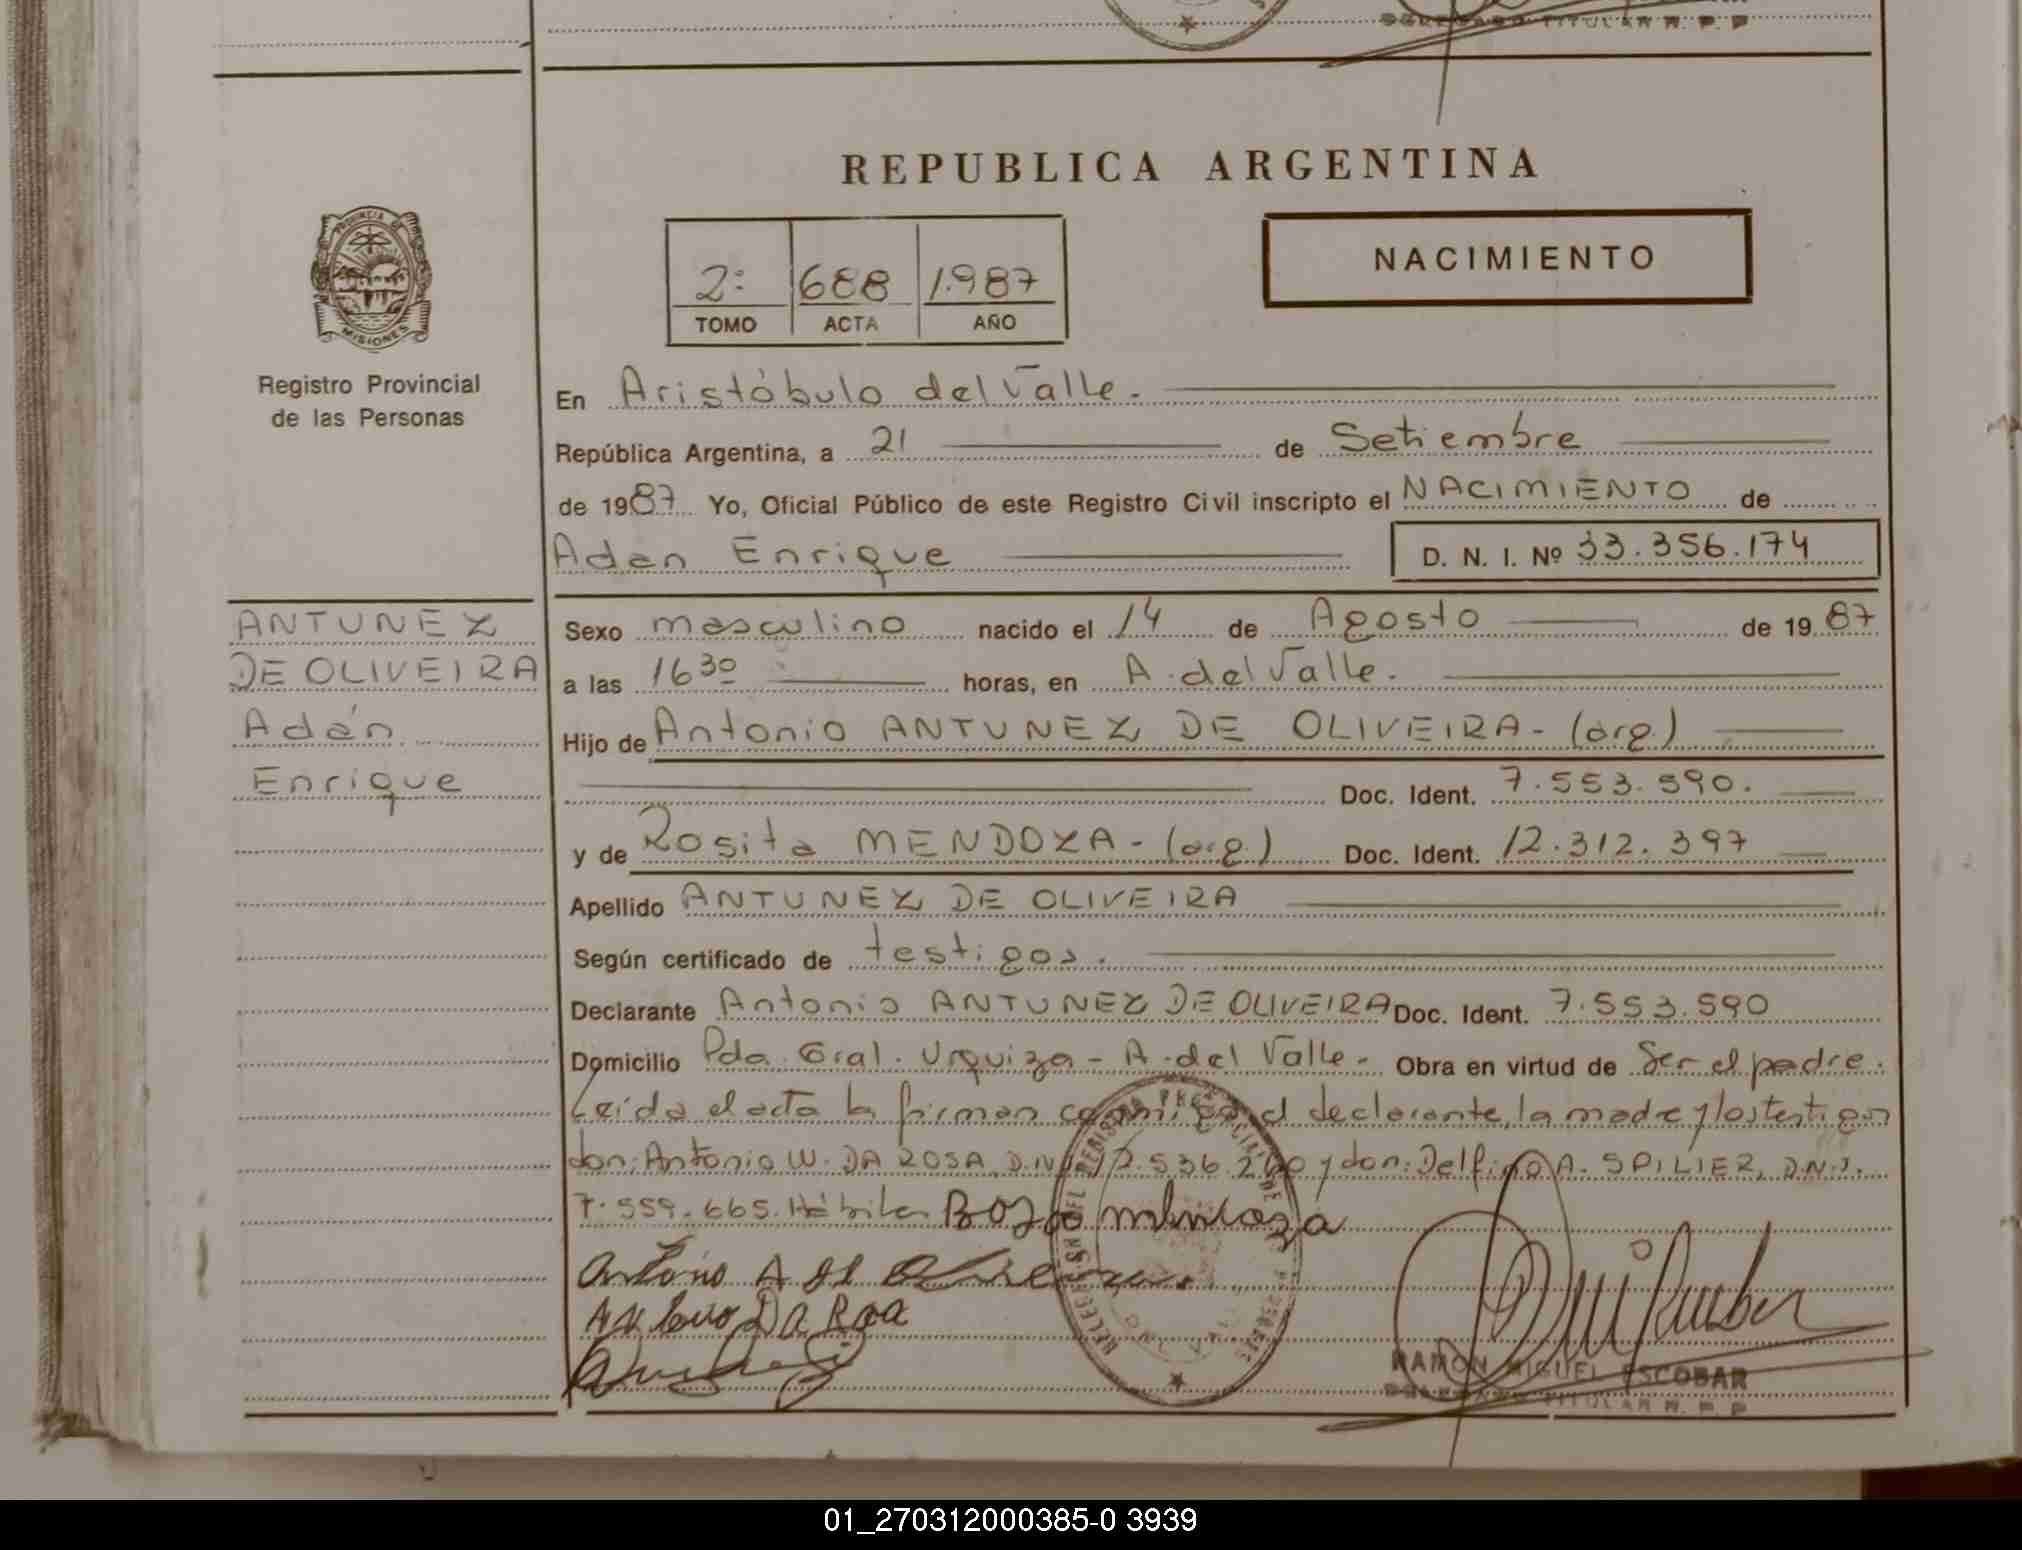 DELEGADO TITULAR R. P. P
REPUBLICA ARGENTINA
PROVINCIA DE
MISIONES
Registro Provincial
de las Personas
2: 688 1.987
TOMO ACTA AÑO
NACIMIENTO
En Aristóbulo del Valle.
República Argentina, a 21 de Setiembre
de 1987 Yo, Oficial Público de este Registro Civil inscripto el NACIMIENTO de
Adan Enrique D. N. I. Nº 33.356.174
ANTUNEZ
DE OLIVEIRA
Adán
Enrique
Sexo masculino nacido el 14 de Agosto de 1987
a las 16 30 horas, en A. del Valle.
Hijo de Antonio ANTUNEZ DE OLIVEIRA - (arg.)
Doc. Ident. 7.553.590.
y de Rosita MENDOZA - (arg.) Doc. Ident. 12.312.397
Apellido ANTUNEZ DE OLIVEIRA
Según certificado de testigos.
Declarante Antonio ANTUNEZ DE OLIVEIRA Doc. Ident. 7.553.590
Domicilio Pda. Gral. Urquiza - A. del Valle - Obra en virtud de Ser el padre.
Leída el acta la firman conmigo el declarante, la madre y los testigos
don: Antonio W. DA ROSA, D.N.I. y don: Delfino A. SPILIER, D.N.I.
7.559.665. Hábiles
RAMON MIGUEL ESCOBAR
DELEGADO TITULAR R. P. P
01_270312000385-0 3939